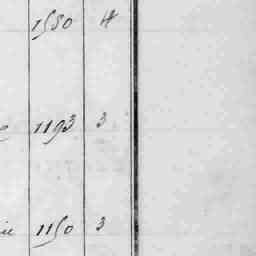 1580 4
1193 3
1150 3